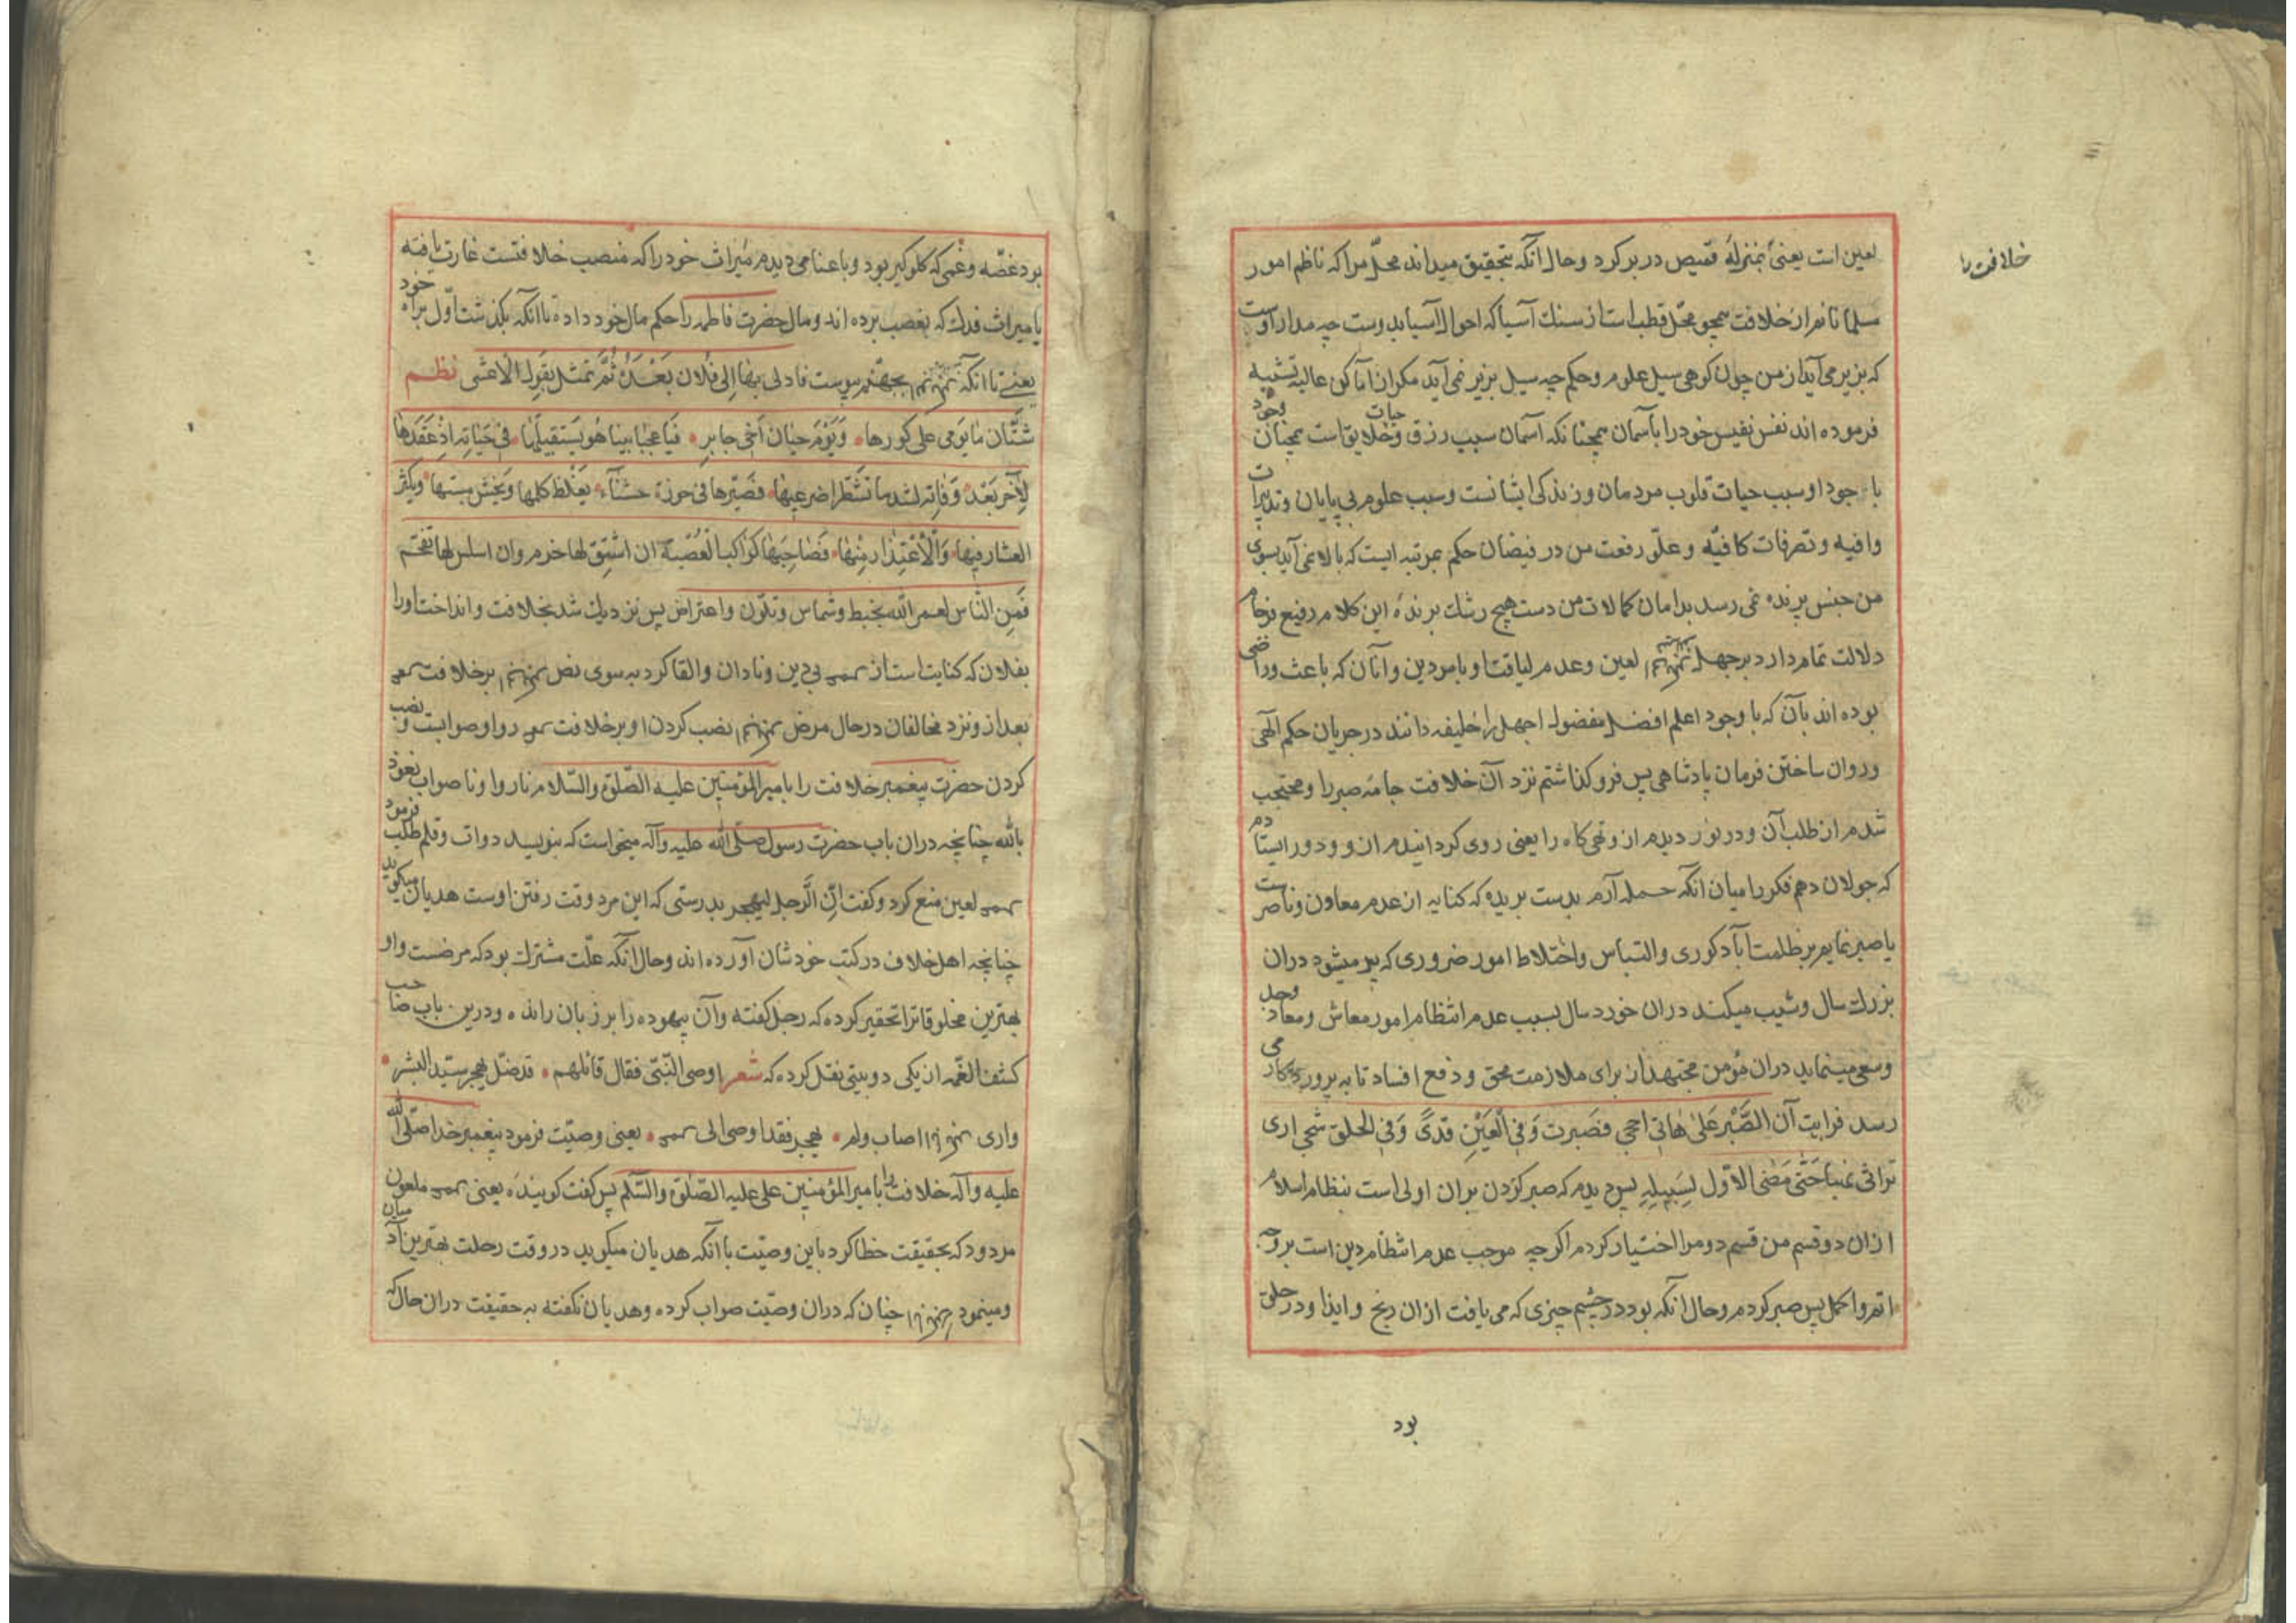 خلافت را
لعین است یعنی بمنزله قمیص در بر کرد و حال آنکه بتحقیق میداند محلّ مرا که ناظم امور
مسلمانانم از خلافت همچو محلّ قطب است از سنك آسیا که احوال آسیا بدوست چه مدار اوست
که بزیر می آید از من چون کوهی سیل علوم و حکم چه سیل بزیر نمی آید مکر از اماکن عالیه تشبیه
فرموده اند نفس نفیس خود را بآسمان همچنانکه آسمان سبب رزق و حیات خلایق است همچنان وجود
با جود او سبب حیات قلوب مردمان و زندکی ایشانست و سبب علوم بی پایان و تدبیرات
وافیه و تصرفات کافیّه و علوّ رفعت من در فیضان حکم بمرتبه ایست که بالا نمی آید بسوی
من جنس پرنده نمی رسد بدامان کمالات من دست هیچ رشك برندهٔ این کلام رفیع
دلالت تمام دارد بر جهل لعین و عدم لیاقت او بامر دین و آنان که باعث و راضی
بوده اند بآن که با وجود اعلم افضل مفضول اجهل را خلیفه دانند در جریان حکم الهی
و روان ساختن فرمان پادشاهی پس فرو کذاشتم نزد آن خلافت جامه صبر را و محتجب
شدم از طلب آن و در نور دیدم از و تهی کاه را یعنی روی کردانیدم از و و دور ایستادم
که جولان دهم فکر را میان آنکه حمله آرم بدست بریده که کنایه از عدم معاون و ناصر است
یا صبر نمایم بر ظلمت آباد کوری و التباس و اختلاط امور ضروری که پیر میشود در ان
بزرك سال و شیب میکند در ان خورد سال بسبب عدم انتظام امور معاش و معاد وجد
و سعی مینماید در ان مؤمن مجتهد از برای ملازمت محق و دفع افساد تا به پروردکار می
رسد فرایت آن الصّبر علی هاتی احجی فصبرت و فی العین قذی و فی الحلق شجی اری
تراثی نهبا حتّی مضی الاوّل لسبیله پس دیدم که صبر کردن بر ان اولی است بنظام اسلام
از ان دو قسم من قسم دوم را اختیار کردم اکر چه موجب عدم انتظام دین است بر وجه
اتم و اکمل پس صبر کردم و حال آنکه بود در چشم چیزی که می یافت از ان رنج و ایذا و در حلق
بود
بود غصّه و غمی که کلو کیر بود و با عنا می دیدم میراث خود را که منصب خلافتست غارت یافته
یا میراث فدك که بغصب برده اند و مال حضرت فاطمه را حکم مال خود داده تا انکه بکذشت اوّل براه خود
یعنی تا انکه بجهنّم پیوست فادلی بها الی فلان بعده ثمّ تمثل بقول الاعشی نظم
شتّان ما یومی علی کورها و یوم حیان اخی جابر فیا عجبا بینا هو یستقیلها فی حیاته اذ عقدها
لآخر بعد وفاته لشد ما تشطرا ضرعیها فصیّرها فی حوزة خشناء یغلظ کلمها و یخشن مسّها و یکثر
العثار فیها و الاعتذار منها فصاحبها کراکب الصّعبة ان اشنق لها خرم و ان اسلس لها تقحّم
فمن النّاس لعمر الله بخبط و شماس و تلوّن و اعتراض پس نزدیك شد بخلافت و انداخت او را
بفلان که کنایت است از بی دین و نادان و القا کرد به سوی نص بر خلافت
بعد از و نزد مخالفان در حال مرض نصب کردن او بر خلافت روا و صوابست و نصب
کردن حضرت پیغمبر خلافت را بامیر المؤمنین علیه الصّلوة و السّلام ناروا و ناصواب نعوذ
بالله چنانچه در ان باب حضرت رسول صلّی الله علیه و آله میخواست که بنویسد دوات و قلم طلب فرمود
لعین منع کرد و کفت انّ الرّجل لیهجر بدرستی که این مرد وقت رفتن اوست هدیان میکوید
چنانچه اهل خلاف در کتب خودشان آورده اند و حال انکه علّت مشترك بود که مرضست و او
بهترین مخلوقاترا تحقیر کرده که رجل کفته و آن بیهوده را بر زبان رانده و درین باب صاحب
کشف الغّمه از یکی دو بیتی نقل کرده که شعر اوصی النّبی فقال قائلهم قد ضلّ یهجر سیّد البشر
واری اصاب ولم یهجر فقد اوصی الی یعنی وصیّت فرمود پیغمبر خدا صلّی الله
علیه و آله خلافت را بامیر المؤمنین علی علیه الصّلوة و السّلم پس کفت کوینده یعنی ملعون
مردود که بحقیقت خطا کرد باین وصیّت با آنکه هدیان میکوید در وقت رحلت بهترین آدمیان
و مینمود چنان که در ان وصیّت صواب کرده و هدیان نکفته به حقیقت در ان حال که